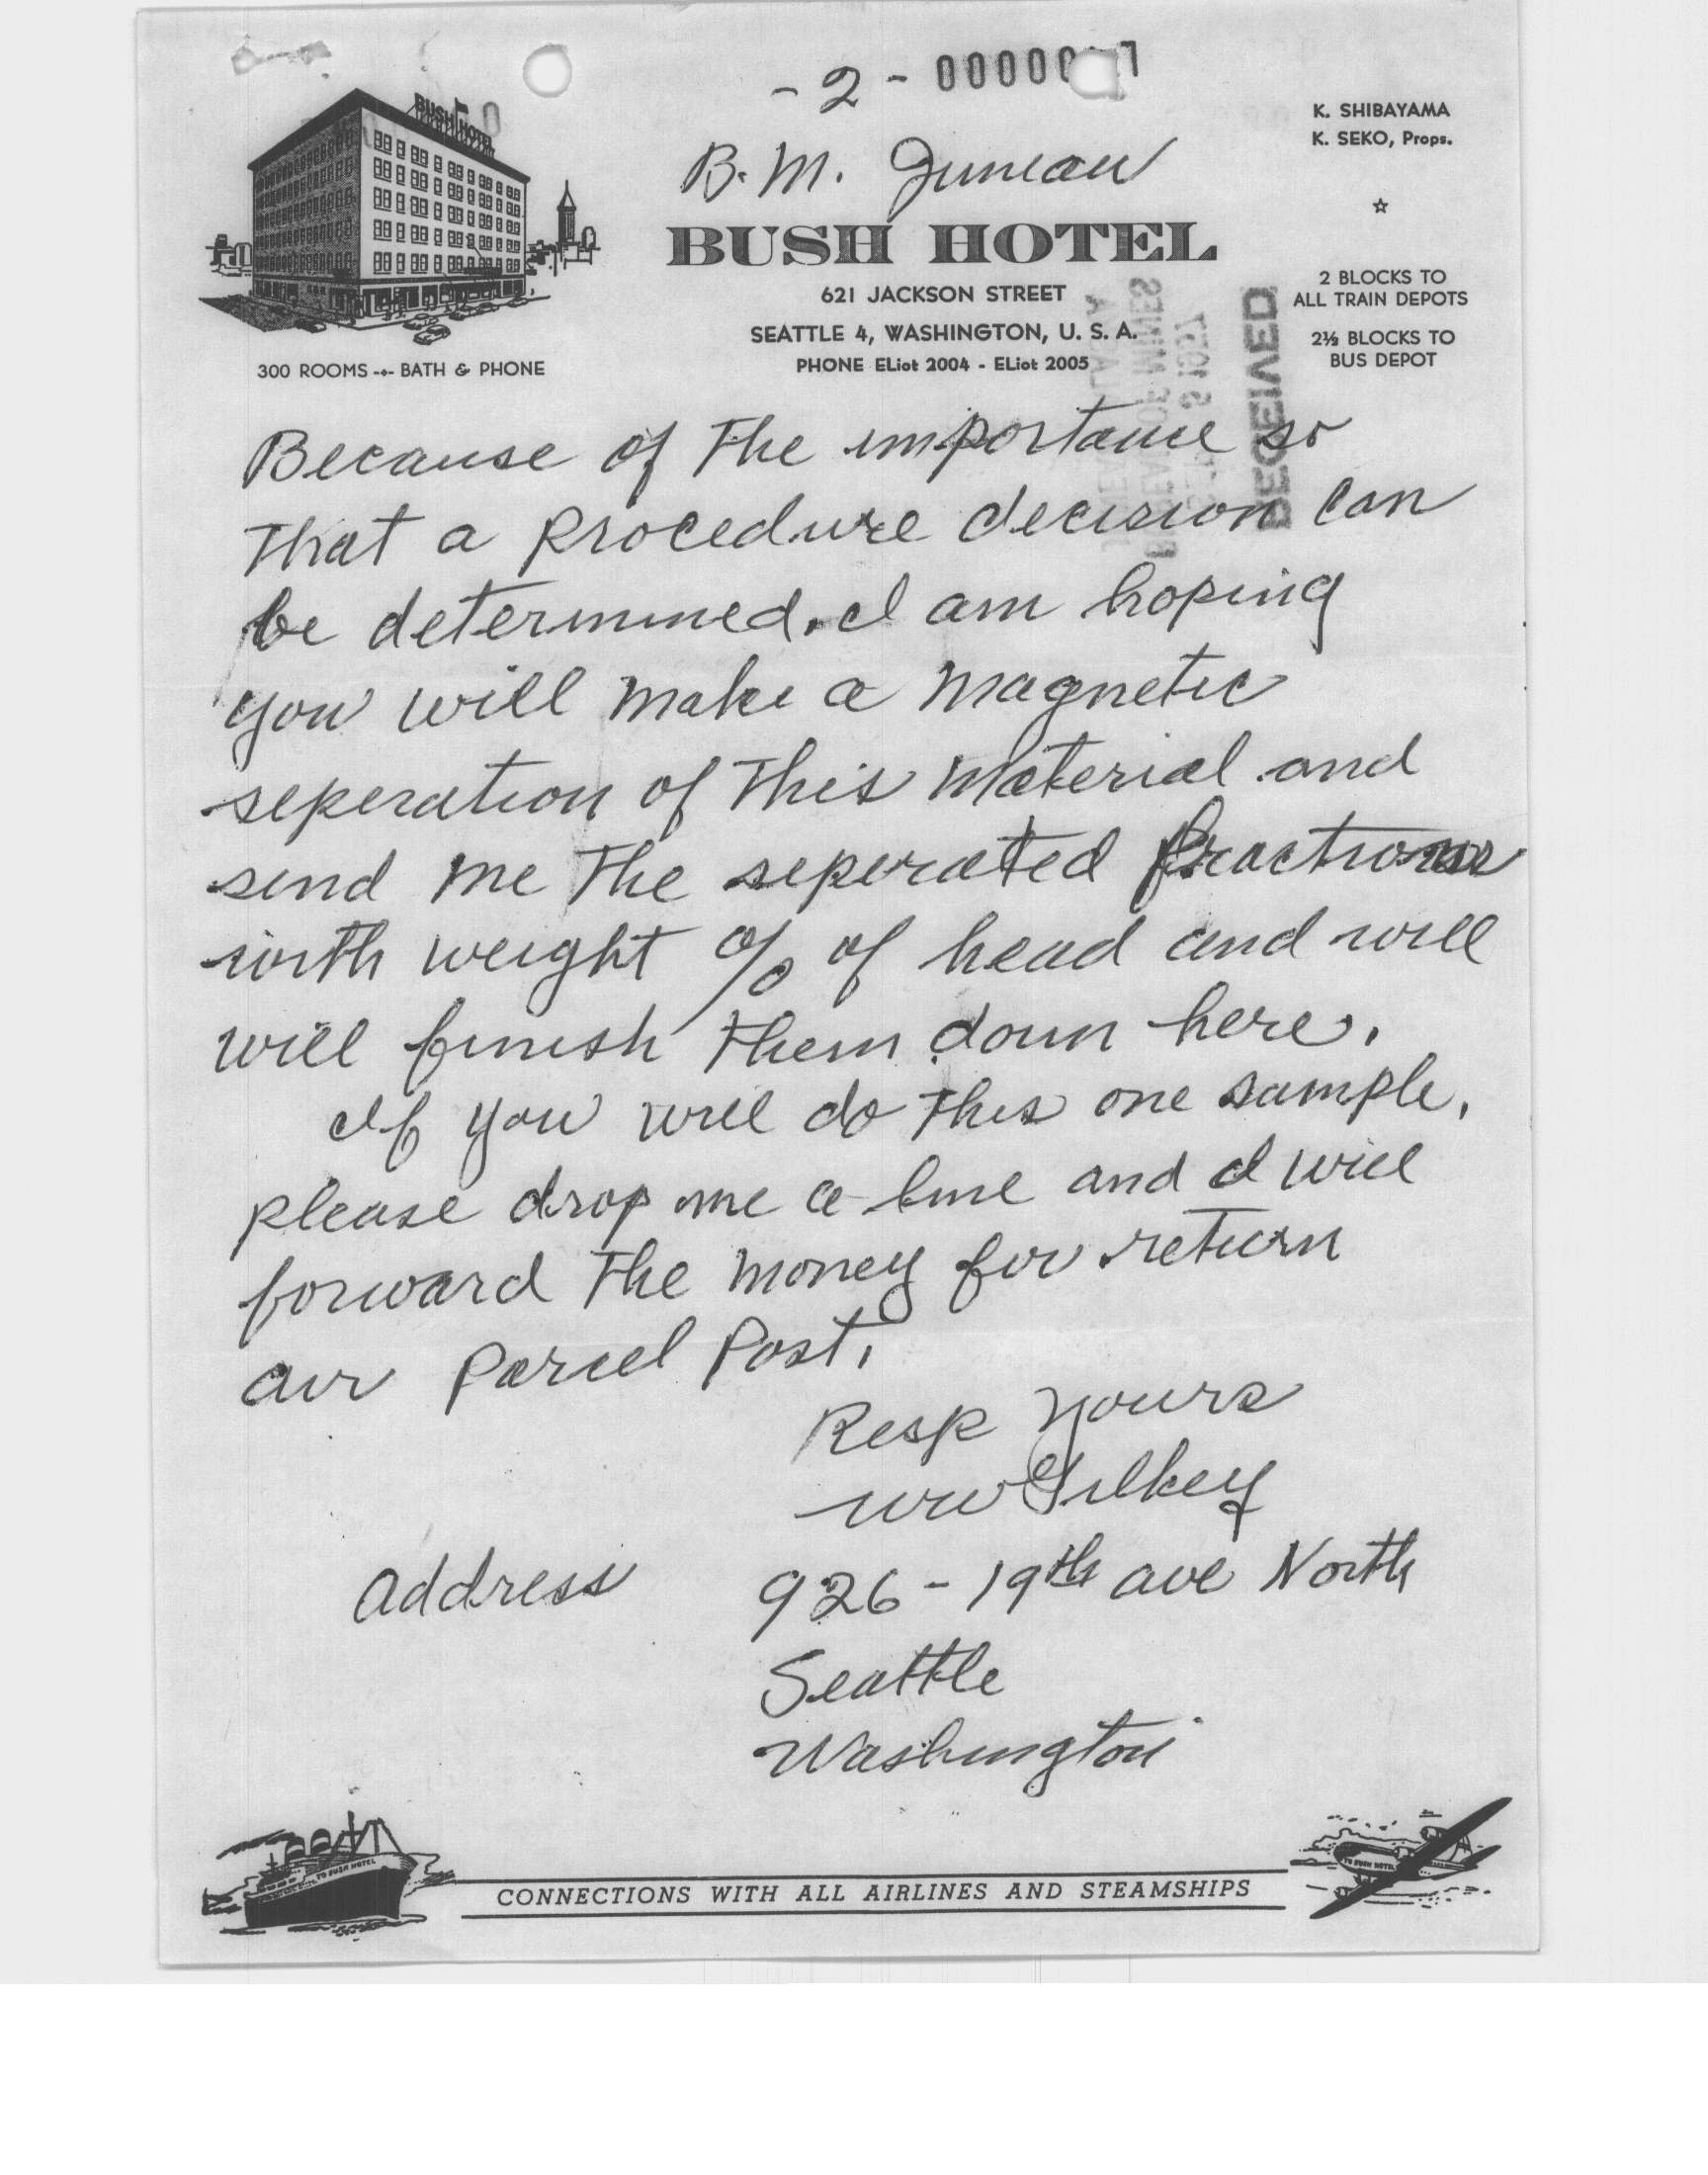 - 2 -
B. M. Juneau
BUSH HOTEL
BUSH HOTEL
621 JACKSON STREET
SEATTLE 4, WASHINGTON, U. S. A.
PHONE ELiot 2004 - ELiot 2005
300 ROOMS -+- BATH & PHONE
K. SHIBAYAMA
K. SEKO, Props.
2 BLOCKS TO
ALL TRAIN DEPOTS
2½ BLOCKS TO
BUS DEPOT
RECEIVED
Because of the importance so
that a procedure decision can
be determined. I am hoping
you will make a magnetic
seperation of this material and
send me the seperated fractions
with weight % of head and will
will finish them down here.
If you will do this one sample,
please drop me a line and I will
forward the money for return
air parcel Post.
Resp yours
WW Gilkey
Address 926 - 19th ave North
Seattle
Washington
TO BUSH HOTEL
CONNECTIONS WITH ALL AIRLINES AND STEAMSHIPS
TO BUSH HOTEL